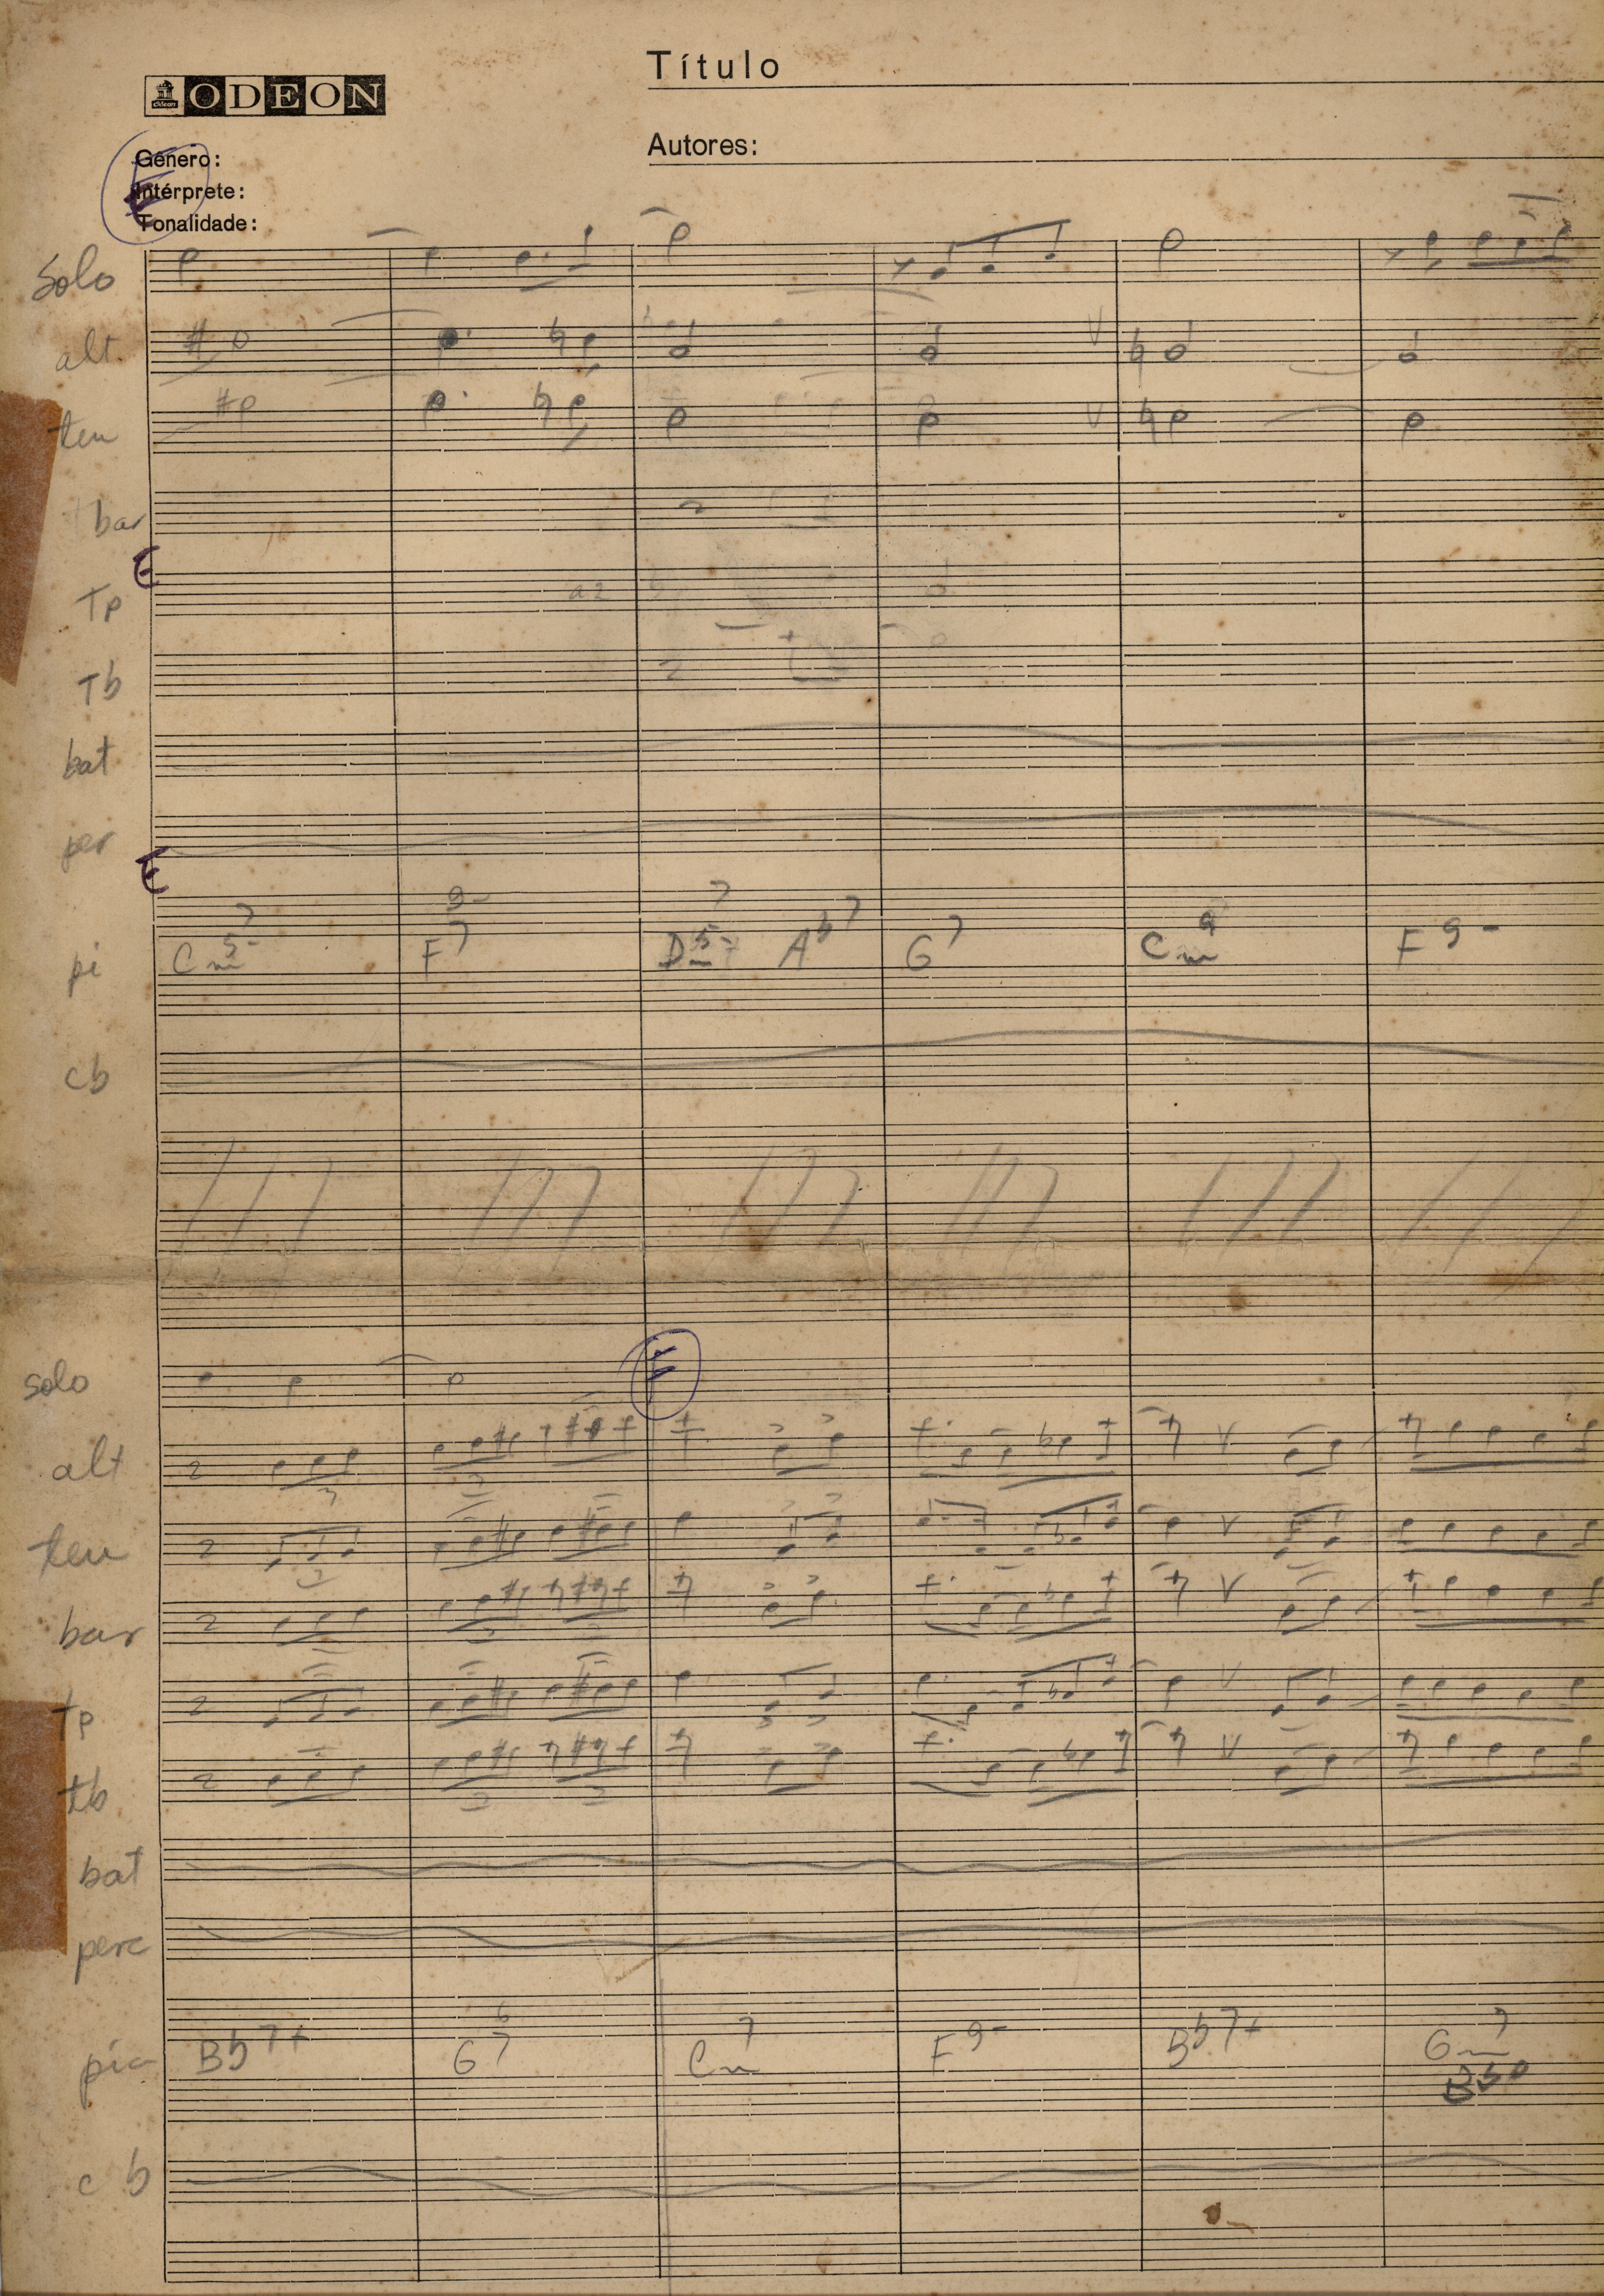 Odeon ODEON
Título
Autores:
Gênero:
Intérprete:
Tonalidade:
E
solo
alt
ten
bar
E
Tp
a2
Tb
bat
per
E
pi Cm7 5- F7 9- Dm7 5- Ab7 G7 Cm9 F9-
cb
solo
F
alt
ten
bar
tp
tb
bat
perc
Bb7+ G7 6 Cm7 F9- Bb7+ Gm7
cb